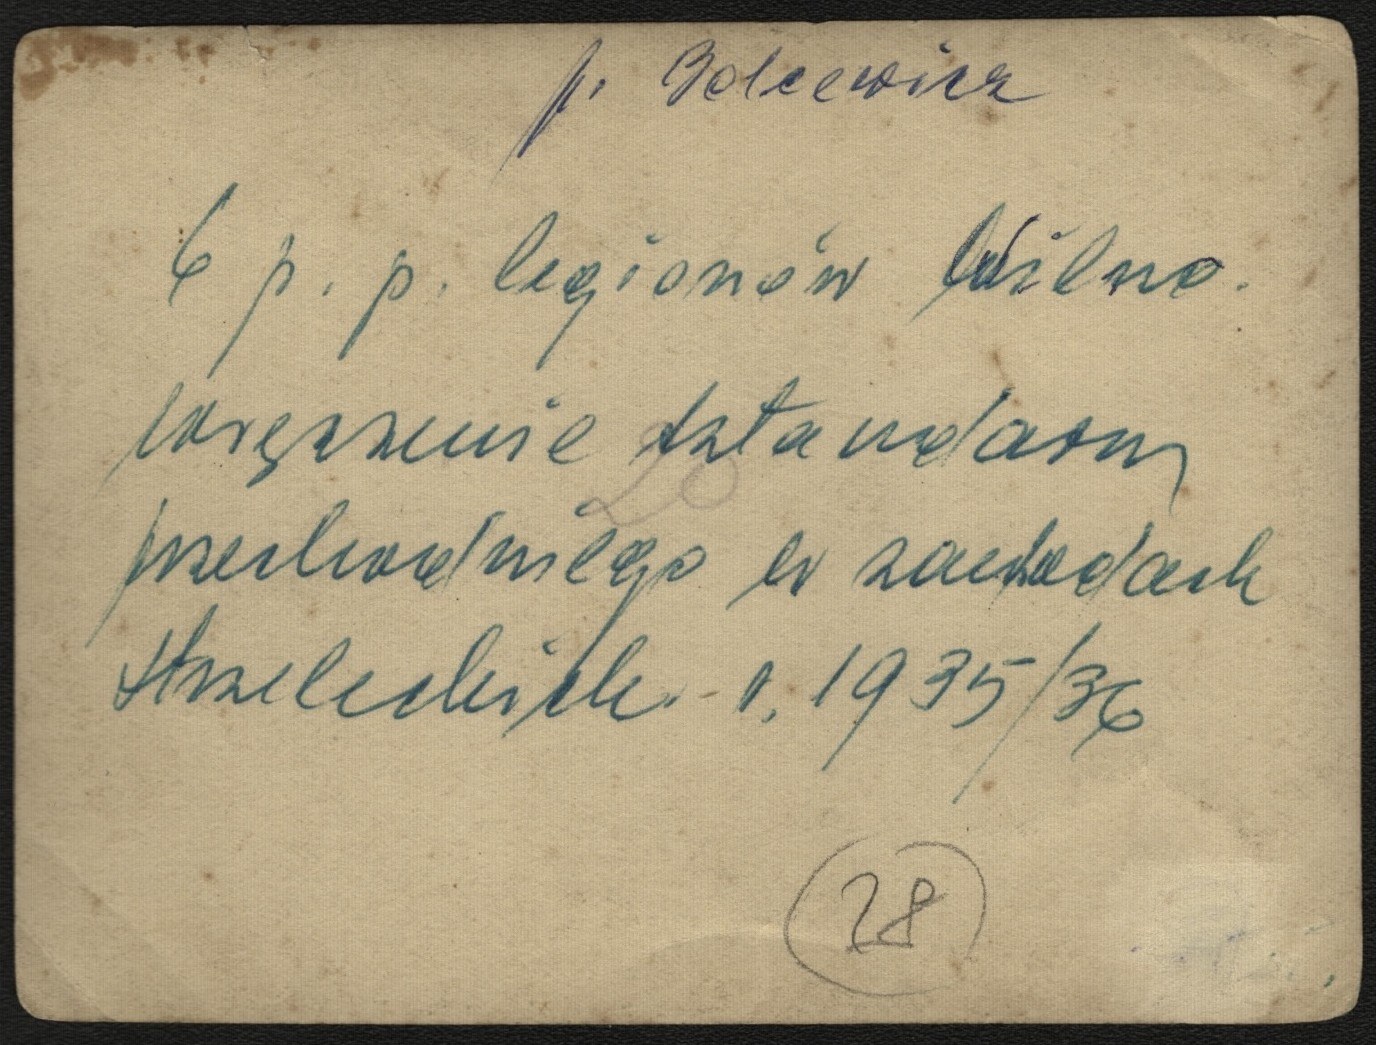 p. Bolcewicz
6 p. p. legionów Wilno.
wręczenie sztandaru
20
przechodniego w zawodach
strzeleckich - r. 1935/36
28